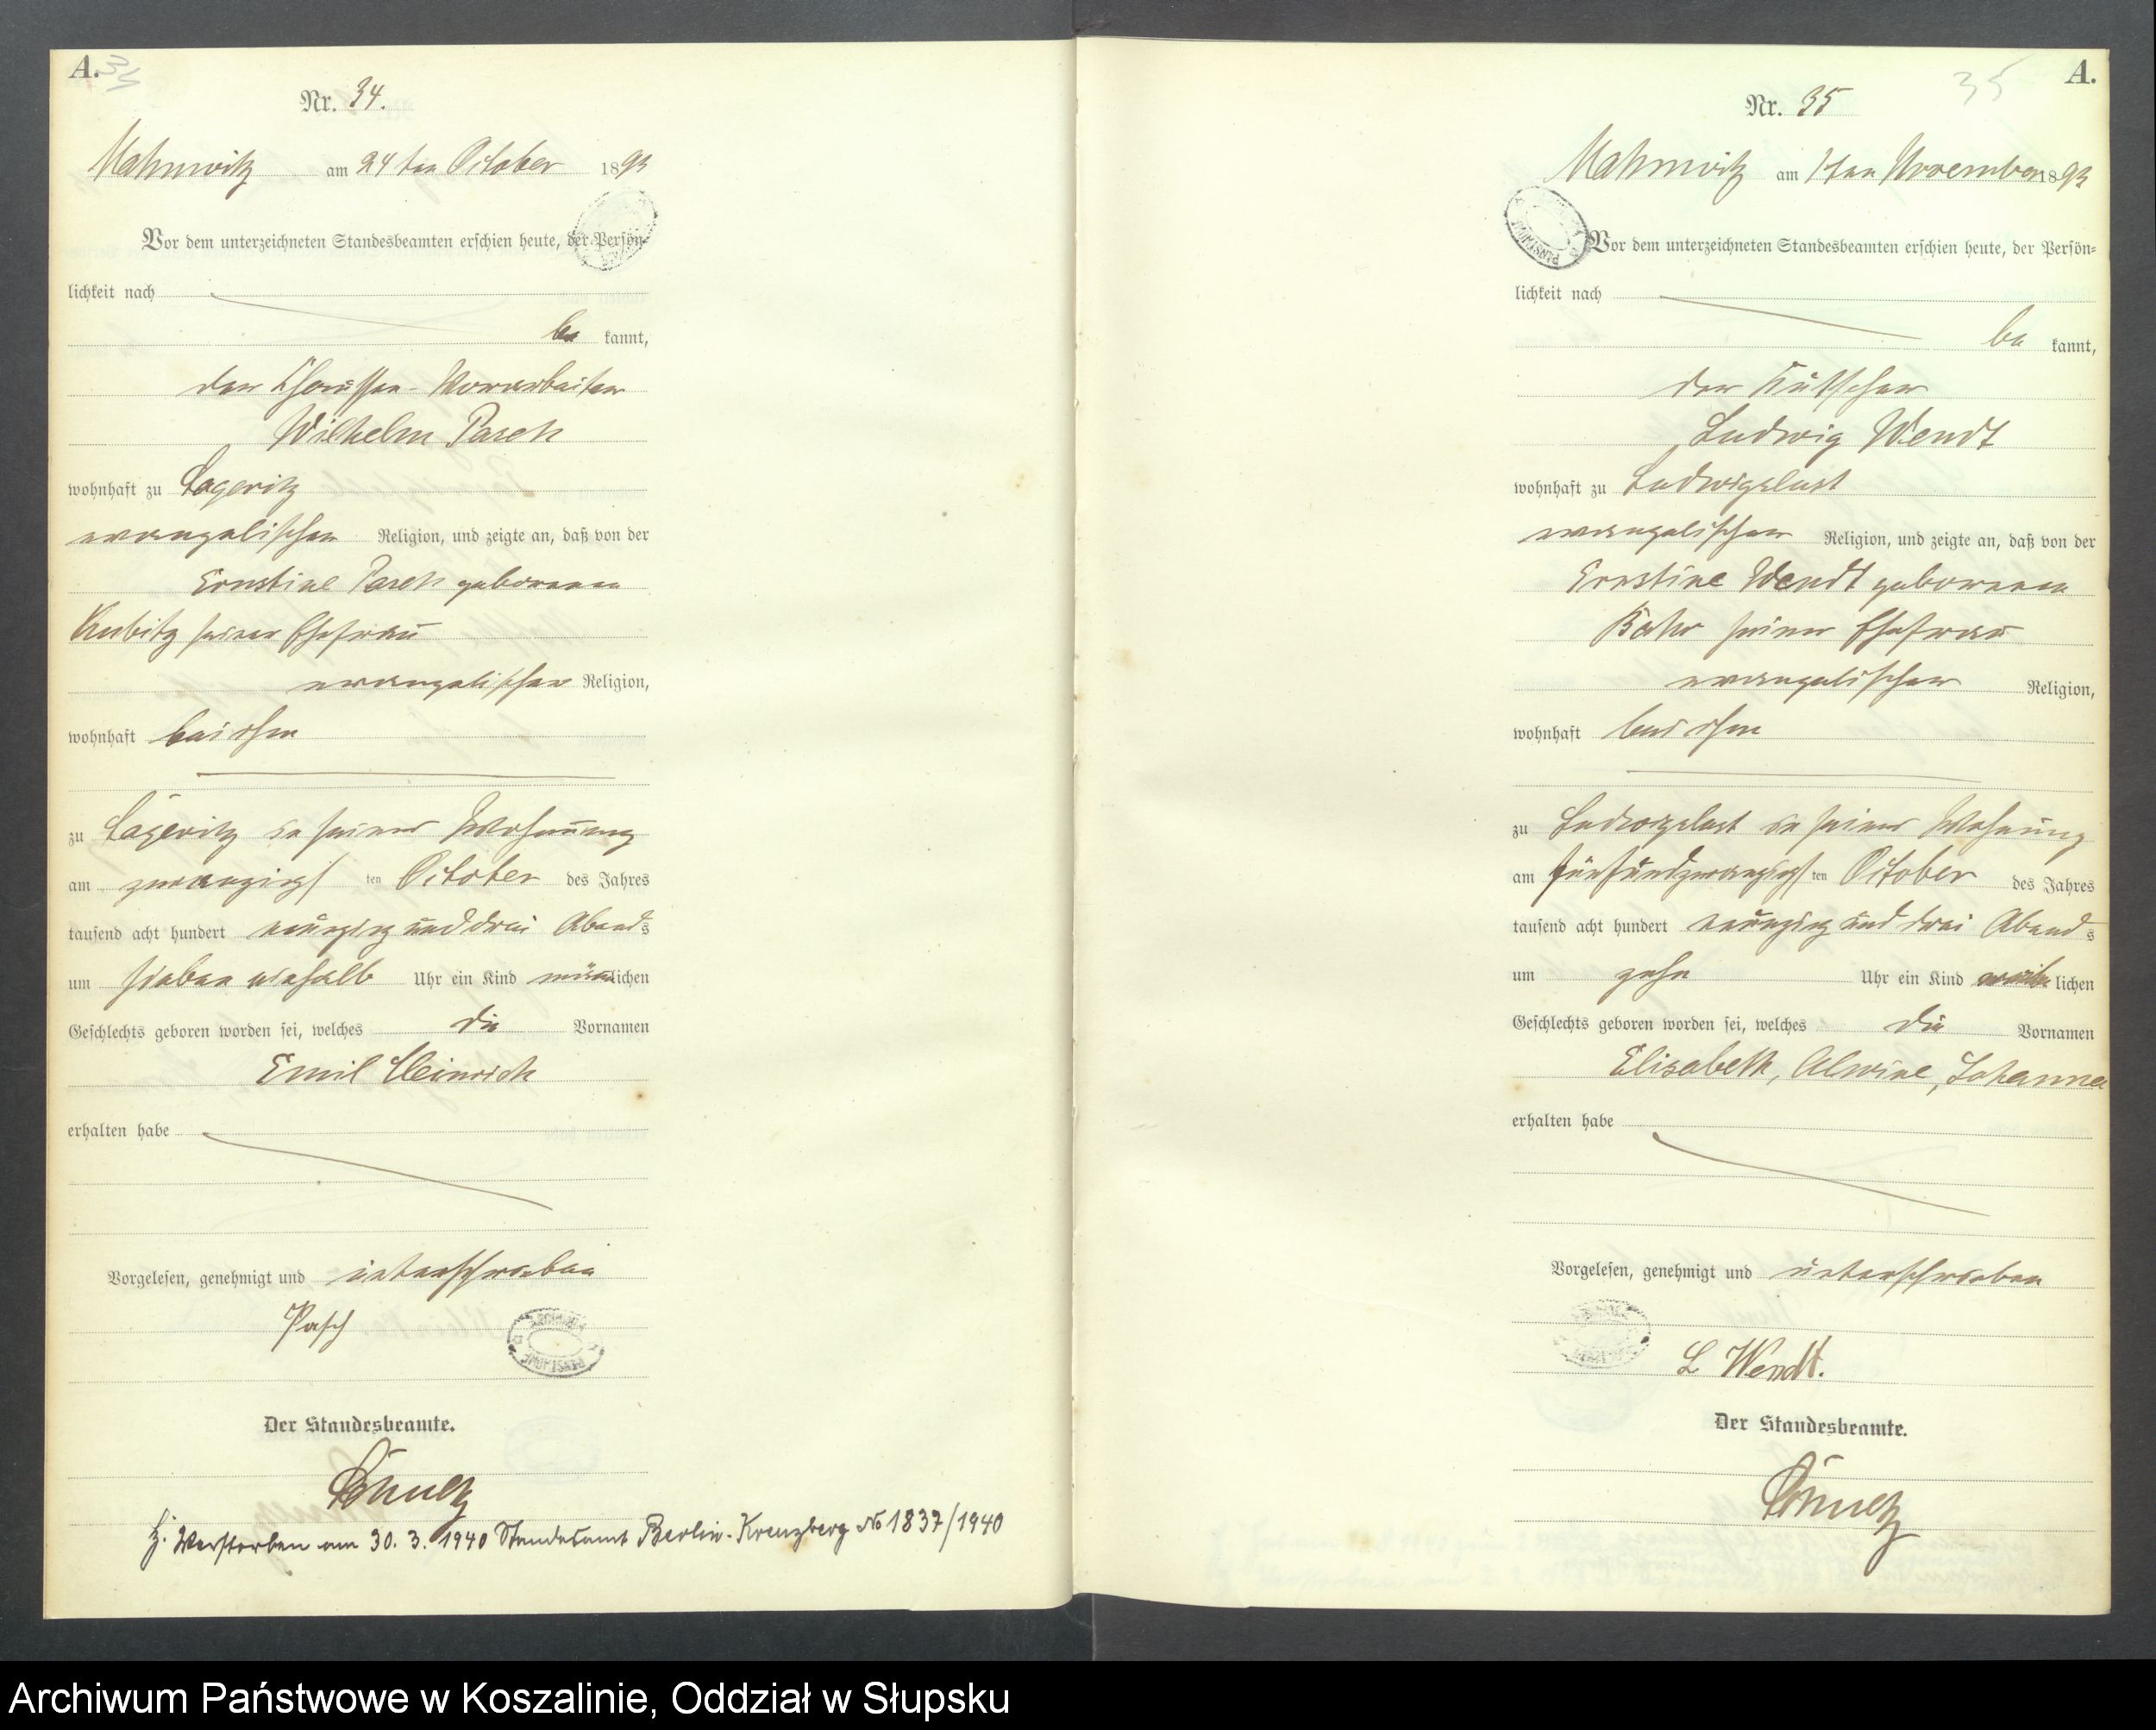 A. 34
Nr. 34.
Mahnwitz am 24 ten October 1893
Vor dem unterzeichneten Standesbeamten erschien heute, der Persön-
lichkeit nach
be kannt,
der Chaussee-Vorarbeiter
Wilhelm Pasch
wohnhaft zu Lageritz
evangelischer Religion, und zeigte an, daß von der
Ernstine Pasch geborenen
Kubitz seiner Ehefrau
evangelischer Religion,
wohnhaft bei ihm
zu Lageritz in seiner Wohnung
am zwanzigs ten October des Jahres
tausend acht hundert neunzig und drei Abends
um sieben einhalb Uhr ein Kind männlichen
Geschlechts geboren worden sei, welches die Vornamen
Emil Heinrich
erhalten habe
Vorgelesen, genehmigt und unterschrieben
Pasch
Der Standesbeamte.
Verstorben am 30. 3. 1940 Standesamt Berlin-Kreuzberg No 1837/1940
35 A.
Nr. 35
Mahnwitz am 1 ten November 1893
Vor dem unterzeichneten Standesbeamten erschien heute, der Persön-
lichkeit nach
be kannt,
der Kutscher
Ludwig Wendt
wohnhaft zu Ludwigslust
evangelischer Religion, und zeigte an, daß von der
Ernstine Wendt geborenen
seiner Ehefrau
evangelischer Religion,
wohnhaft bei ihm
zu Ludwigslust in seiner Wohnung
am fünfundzwanzigs ten October des Jahres
tausend acht hundert neunzig und drei Abends
um zehn Uhr ein Kind weiblichen
Geschlechts geboren worden sei, welches die Vornamen
Elisabeth, Alwine, Johanna
erhalten habe
Vorgelesen, genehmigt und unterschrieben
L Wendt.
Der Standesbeamte.
Archiwum Państwowe w Koszalinie, Oddział w Słupsku